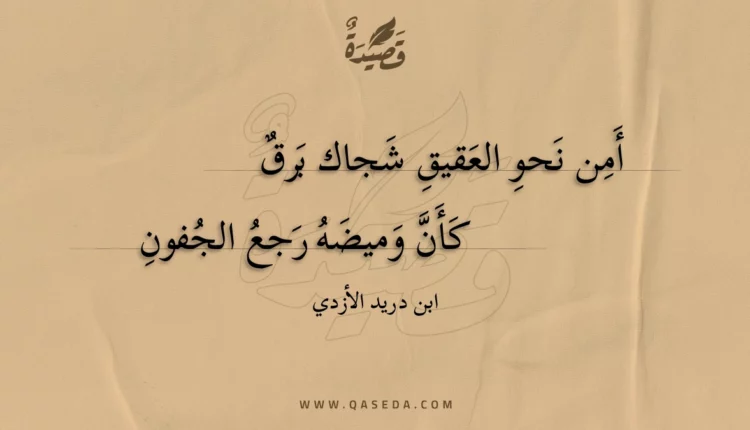 قَصِيْدَةٌ
أَمِن نَحوِ العَقيقِ شَجاك بَرقٌ
كَأَنَّ وَميضَهُ رَجعُ الجُفونِ
ابن دريد الأزدي
WWW.QASEDA.COM